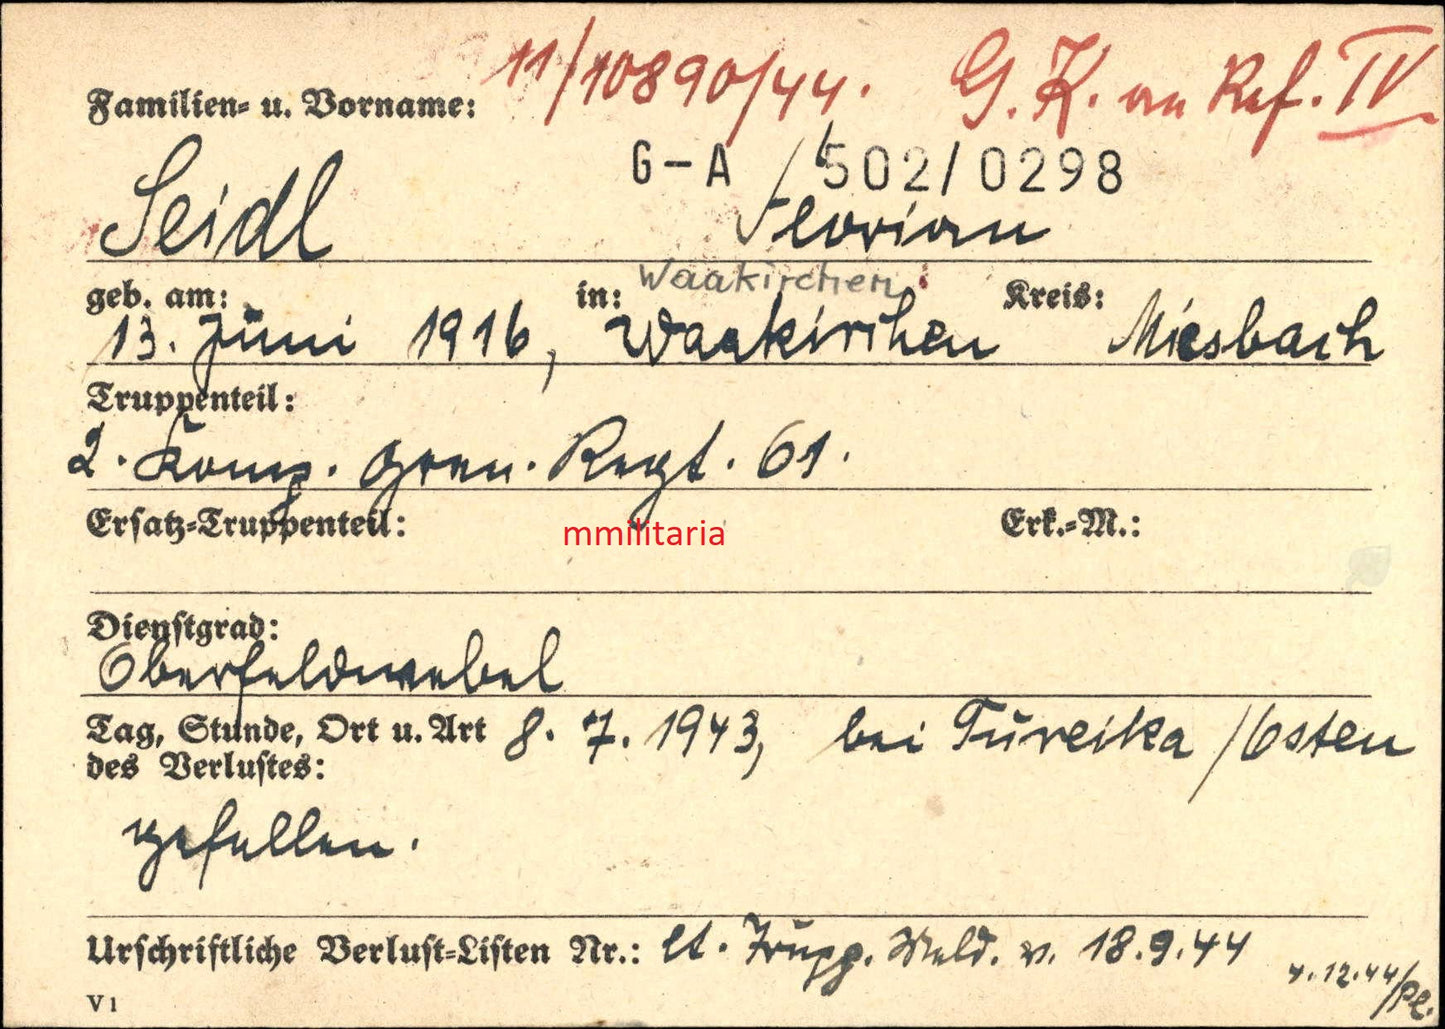 11/10890/44. G. K. an Ref. IV
Familien- u. Vorname:
G-A / 502/0298
Seidl Florian
Waakirchen
geb. am: in: Kreis:
13. Juni 1916, Waakirchen Miesbach
Truppenteil:
2. Komp. Gren. Regt. 61.
Ersatz-Truppenteil: mmilitaria Erk.-M.:
Dienstgrad:
Oberfeldwebel
Tag, Stunde, Ort u. Art 8. 7. 1943, bei Tureika /Osten
des Verlustes:
gefallen.
Urschriftliche Verlust-Listen Nr.: lt. Trupp. Meld. v. 18.9.44
4.12.44/Pl.
V 1